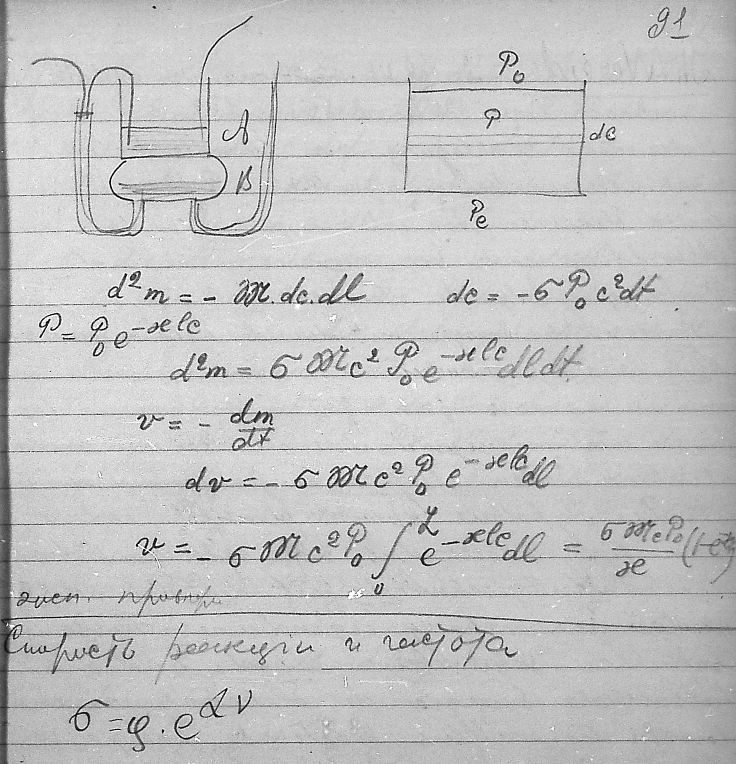 91
P₀
A
P
dc
B
Pₑ
d²m = - 𝔐. dc. dl    dc = - σ P₀ c² dt
P = P₀ e^{-ϰlc}
d²m = σ 𝔐 c² P₀ e^{-ϰlc} dl dt
v = - dm/dt
dv = - σ 𝔐 c² P₀ e^{-ϰlc} dl
v = - σ 𝔐 c² P₀ ∫₀^L e^{-ϰlc} dl = σ 𝔐 c P₀/ϰ (1-e
Скорость реакции и частота
σ = φ · e^{αν}